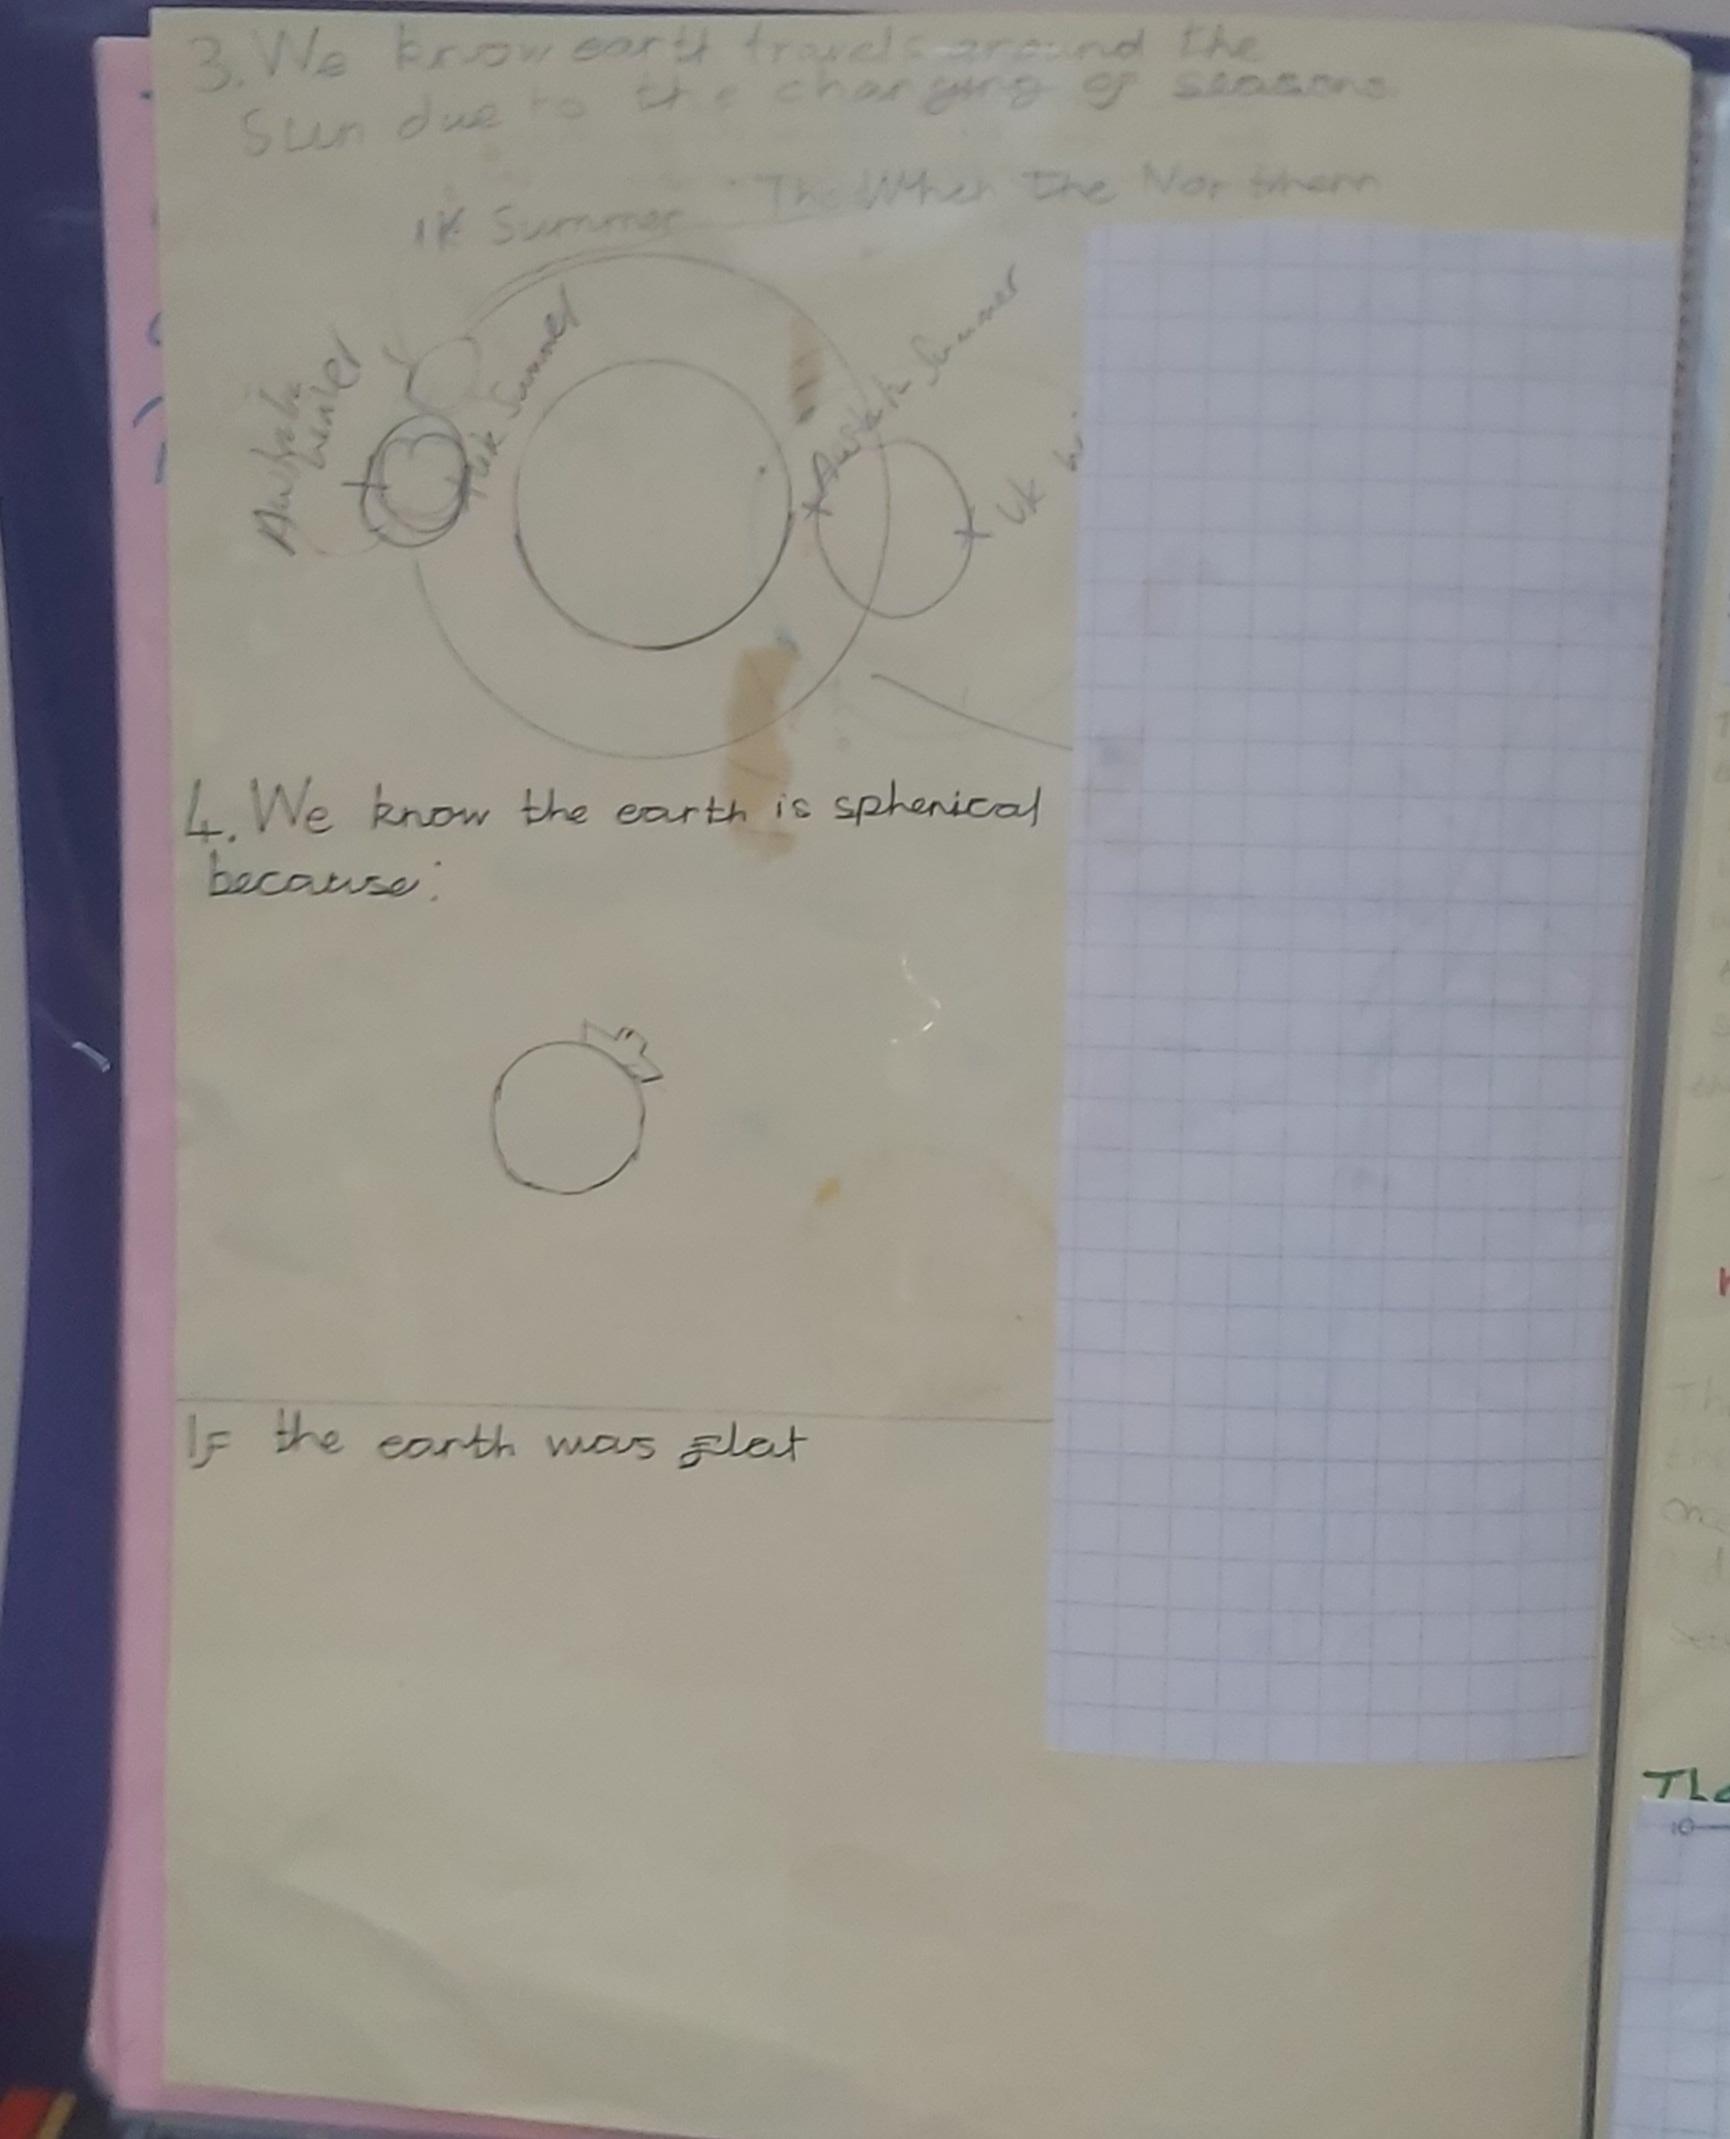 3. We know earth travels around the
Sun due to the changing of seasons
The When the Northern
UK Summer
winter
UK Summer
Summer
UK
4. We know the earth is spherical
because:
If the earth was flat
The
10